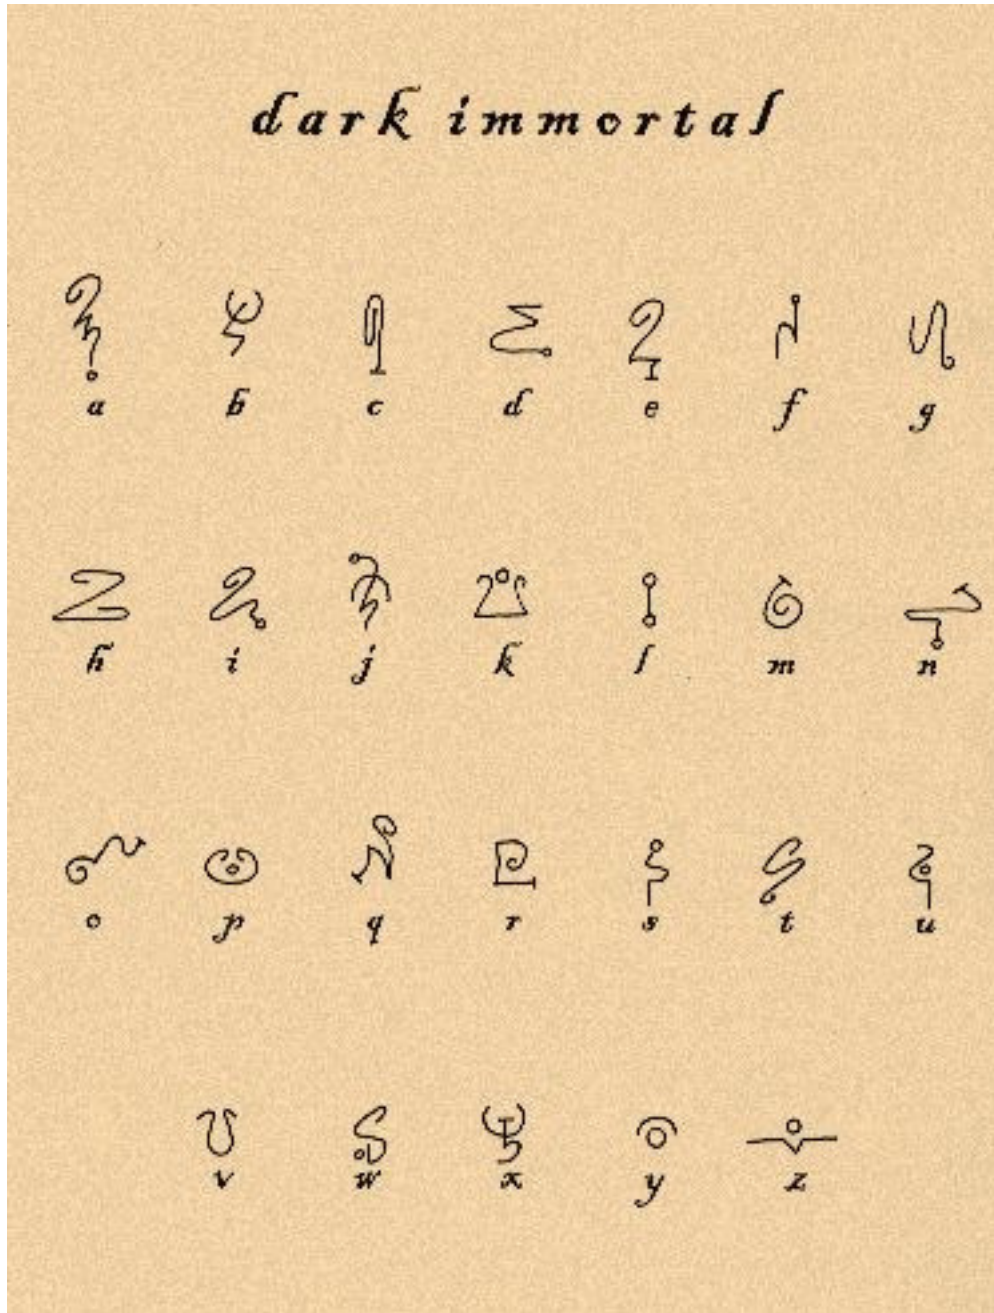 dark immortal
a b c d e f g
h i j k l m n
o p q r s t u
v w x y z